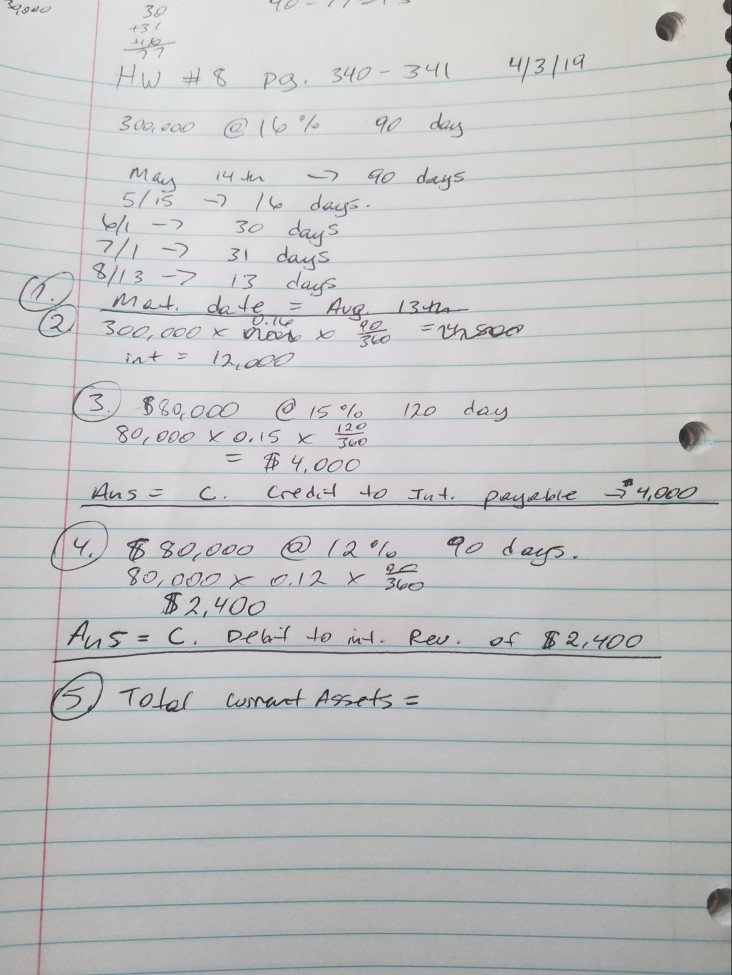 30,000
30
+31
+16
77
HW # 8 pg. 340 - 341 4/3/19
300,000 @ 16% 90 day
May 14th -> 90 days
5/15 -> 16 days.
6/1 -> 30 days
7/1 -> 31 days
8/13 -> 13 days
1. Mat. date = Aug. 13th
2 300,000 x 0.16 x 90/360 =
int = 12,000
3. $80,000 @ 15% 120 day
80,000 x 0.15 x 120/360
= $4,000
Ans = C. Credit to Int. payable -> $4,000
4. $80,000 @ 12% 90 days.
80,000 x 0.12 x 90/360
$2,400
Ans = C. Debit to int. Rev. of $2,400
5. Total current Assets =